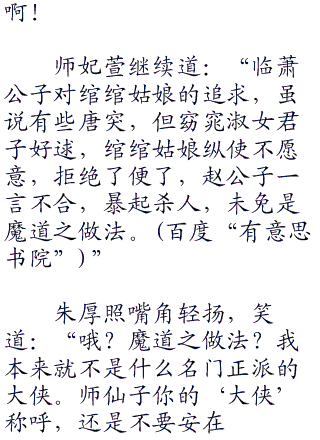 啊！
师妃萱继续道：“临萧
公子对绾绾姑娘的追求，虽
说有些唐突，但窈窕淑女君
子好逑，绾绾姑娘纵使不愿
意，拒绝了便了，赵公子一
言不合，暴起杀人，未免是
魔道之做法。(百度“有意思
书院”)”
朱厚照嘴角轻扬，笑
道：“哦？魔道之做法？我
本来就不是什么名门正派的
大侠。师仙子你的‘大侠’
称呼，还是不要安在